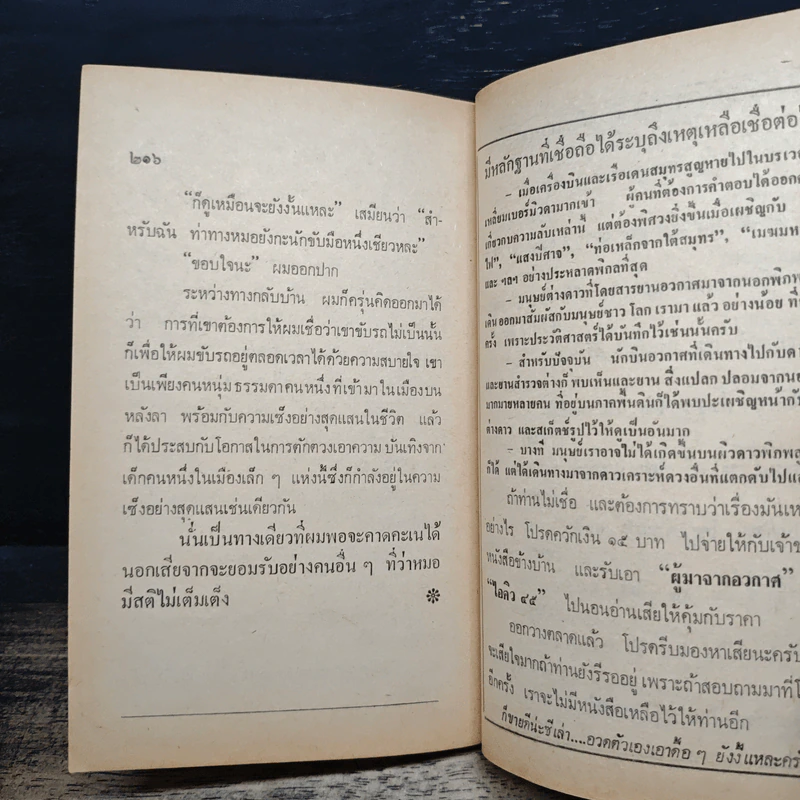 ๒๑๖
“ก็ดูเหมือนจะยังงั้นแหละ” เสมียนว่า “สำ-
หรับฉัน ท่าทางหมอยังกะนักขับมือหนึ่งเชียวหละ”
“ขอบใจนะ” ผมออกปาก
ระหว่างทางกลับบ้าน ผมก็ครุ่นคิดออกมาได้
ว่า การที่เขาต้องการให้ผมเชื่อว่าเขาขับรถไม่เป็นนั้น
ก็เพื่อให้ผมขับรถอยู่ตลอดเวลาได้ด้วยความสบายใจ เขา
เป็นเพียงคนหนุ่ม ธรรมดาคนหนึ่งที่เข้ามาในเมืองบน
หลังลา พร้อมกับความเซ็งอย่างสุดแสนในชีวิต แล้ว
ก็ได้ประสบกับโอกาสในการตักตวงเอาความ บันเทิงจาก
เด็กคนหนึ่งในเมืองเล็ก ๆ แห่งนี้ซึ่งก็กำลังอยู่ในความ
เซ็งอย่างสุดแสนเช่นเดียวกัน
นั่นเป็นทางเดียวที่ผมพอจะคาดคะเนได้
นอกเสียจากจะยอมรับอย่างคนอื่น ๆ ที่ว่าหมอ
มีสติไม่เต็มเต็ง
มีหลักฐานที่เชื่อถือได้ระบุถึงเหตุเหลือเชื่อต่อ
– เมื่อเครื่องบินและเรือเดนสมุทรสูญหายไปในบริเว
เหลี่ยมเบอร์มิวดามากเข้า ผู้คนที่ต้องการคำตอบได้ออก
เกี่ยวกบความลับเหล่านี้ แต่ต้องพิศวงยิ่งขึ้นเมื่อเผชิญกับ
ไฟ”, “แสงปีศาจ”, “ท่อเหล็กจากใต้สมุทร”, “เมฆมห
และ ฯลฯ อย่างประหลาดพิกลที่สุด
– มนุษย์ต่างดาวที่โดยสารยานอวกาศมาจากนอกพิภ
เดินออกมาสัมผัสกับมนุษย์ชาว โลก เรามา แล้ว อย่างน้อย ที่
ครั้ง เพราะประวัติศาสตร์ได้บันทึกไว้เช่นนั้นครับ
– สำหรับปัจจุบัน นักบินอวกาศที่เดินทางไปกับ
และยานสำรวจต่างก็ พบเห็นและยาน สิ่งแปลก ปลอมจากน
มากมายหลายคน ที่อยู่บนภาคพื้นดินก็ได้พบปะเผชิญหน้ากั
ต่างดาว และสเก็ตช์รูปไว้ให้ดูเป็นอันมาก
– บางที มนุษย์เราอาจไม่ได้เกิดขึ้นบนผิวดาวพิภพ
ก็ได้ แต่ได้เดินทางมาจากดาวเคราะห์ดวงอื่นที่แตกดับไปแ
ถ้าท่านไม่เชื่อ และต้องการทราบว่าเรื่องมันเห
อย่างไร โปรดควักเงิน ๑๕ บาท ไปจ่ายให้กับเจ้าข
หนังสือข้างบ้าน และรับเอา “ผู้มาจากอวกาศ”
“ไอคิว ๔๕” ไปนอนอ่านเสียให้คุ้มกับราคา
ออกวางตลาดแล้ว โปรดรีบมองหาเสียนะครับ
จะเสียใจมากถ้าท่านยังรีรออยู่ เพราะถ้าสอบถามมาที่โ
อีกครั้ง เราจะไม่มีหนังสือเหลือไว้ให้ท่านอีก
ก็ขายดีน่ะซีเล่า....อวดตัวเองเอาดื้อ ๆ ยังงี้ แหละคร